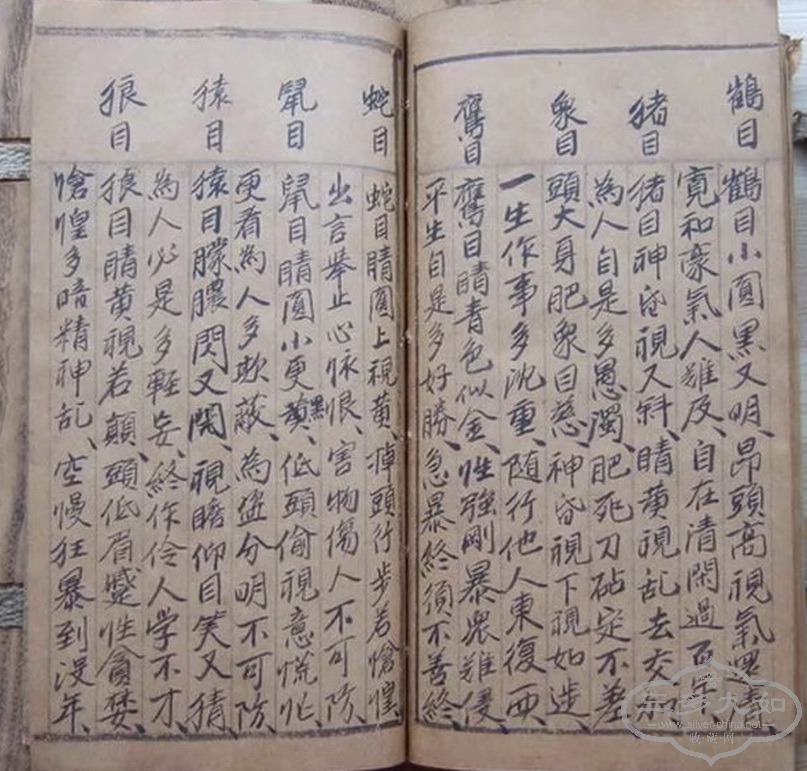 鶴目
鶴目小圓黑又明、昂頭高視氣
寬和豪氣人難及、自在清閑過百年
猪目
猪目神昏視又斜、睛黄視乱去交
為人自是多愚濁、肥死刀砧定不差
象目
頭大身肥象目慈、神昏視下視如造、
一生作事多沈重、随行他人東復西
鷹目
鷹目睛青色似金、性強剛暴眾難侵
平生自是多好勝、急暴終須不善終
蛇目
蛇目睛圓上視黄、掉頭行步若愴惶、
出言舉止心怀恨、害物傷人不可防、
鼠目
鼠目睛圓小更黑、低頭偷視意慌忙、
更看為人多欺蔽、為盗分明不可防、
猿目
猿目朦膿閃又開、視瞻仰目笑又猜
為人必是多輕妄、終作伶人学不才
狼目
狼目睛黄視若顛、頭低眉蹙性貪婪、
愴惶多暗精神乱、空慢狂暴到没年、
www.silver-china.net
收藏网